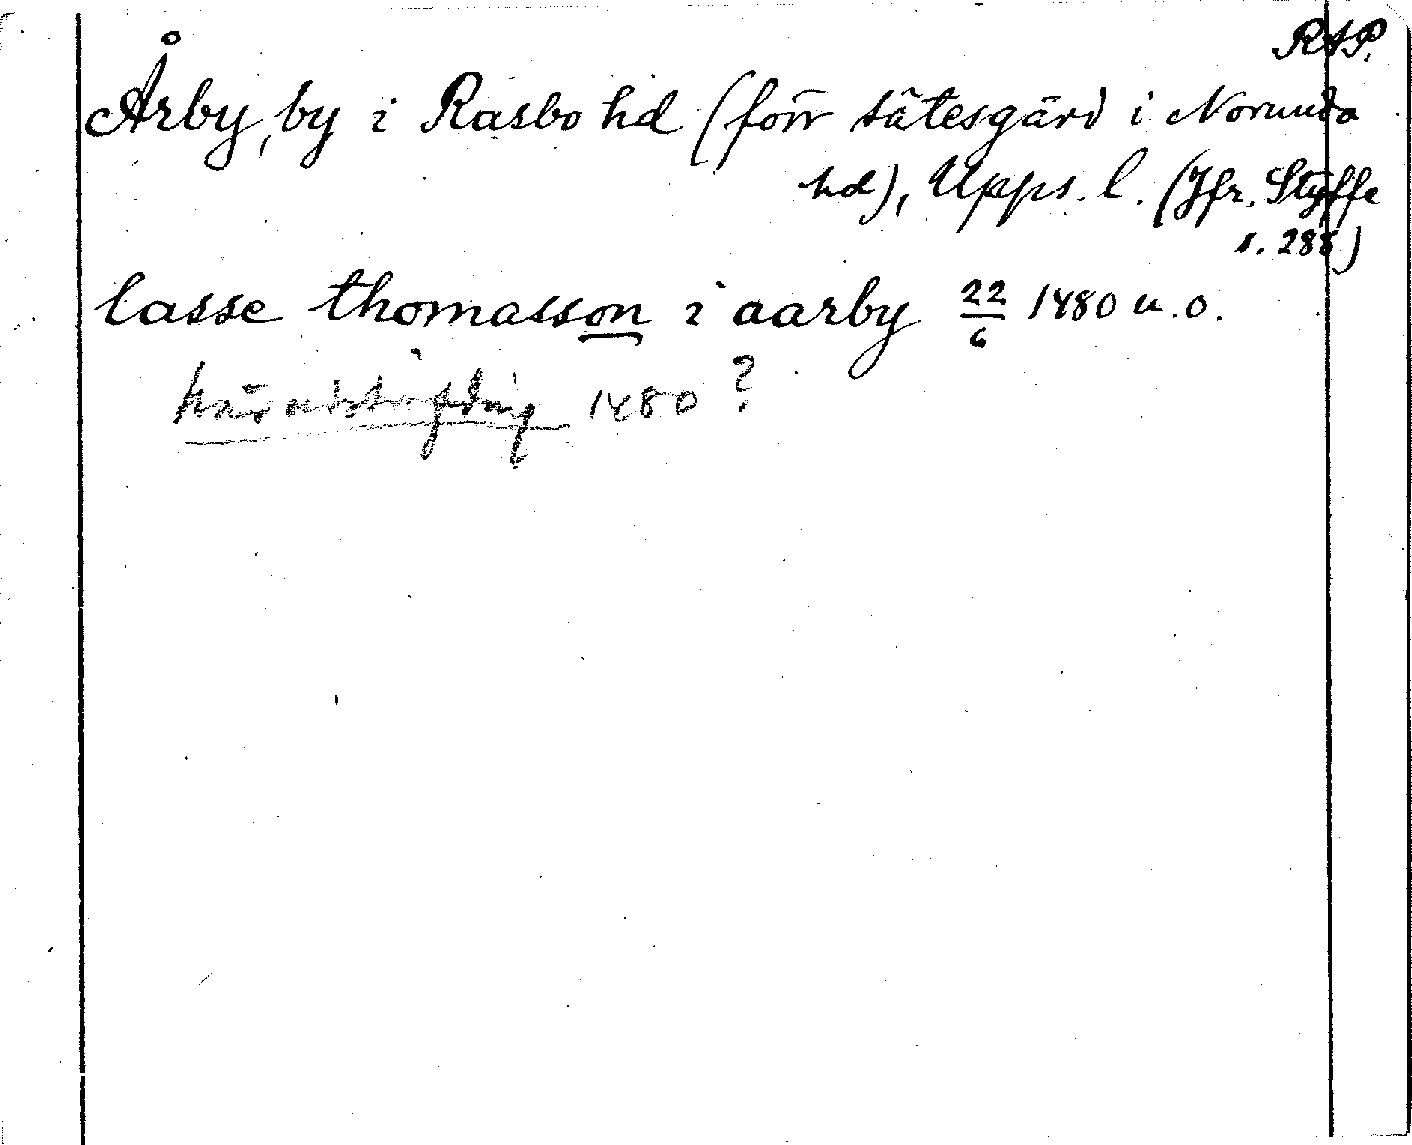 RAP.
Årby, by i Rasbo hd (förr sätesgård i Norunda
hd), Upps. l. (Jfr. Styffe
s. 288)
lasse thomasson i aarby 22/6 1480 u.o.
häradshöfding 1480 ?